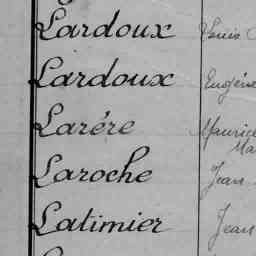 Lardoux Louis
Lardoux Eugène
Larére Maurice
Ma
Laroche Jean
Latimier Jean